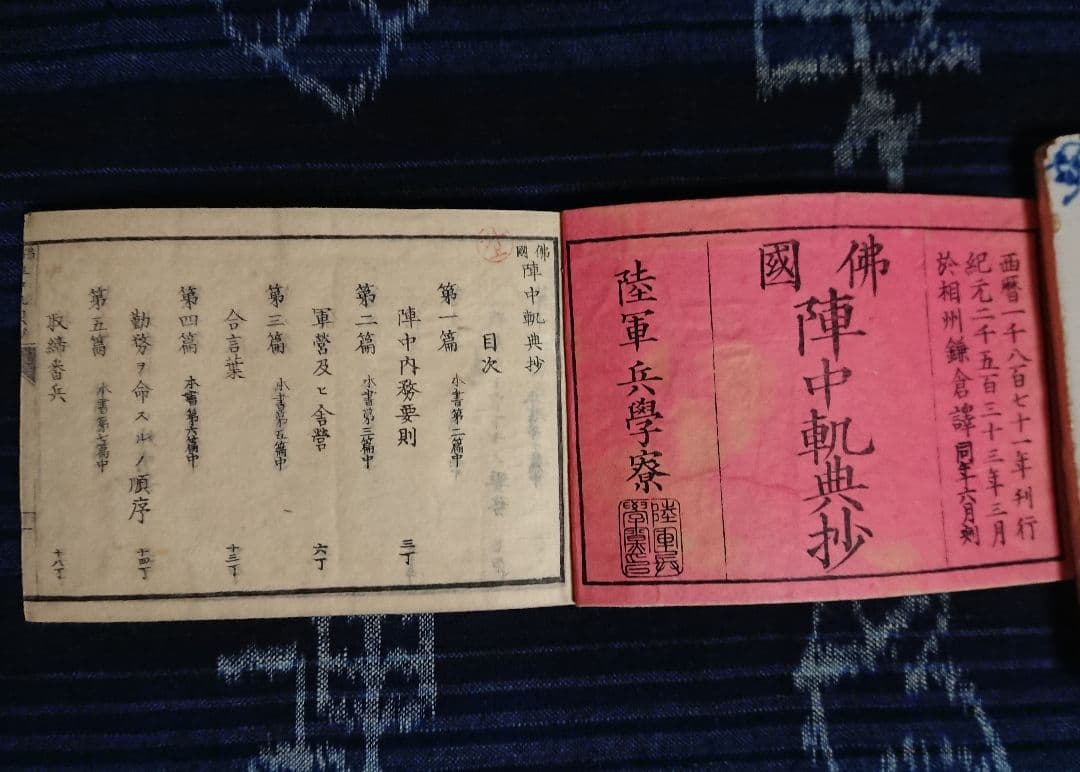 西暦一千八百七十一年刊行
紀元二千五百三十三年三月
於相州鎌倉譯同年六月刻
佛國陣中軌典抄
陸軍兵學寮
佛國陣中軌典抄
目次
第一篇 本書第二篇中
陣中内務要則 三丁
第二篇 本書第三篇中
軍營及ヒ舎營 六丁
第三篇 本書第五篇中
合言葉 十三丁
第四篇 本書第六篇中
勤務ヲ命スルノ順序 十四丁
第五篇 本書第七篇中
取締番兵 十八丁